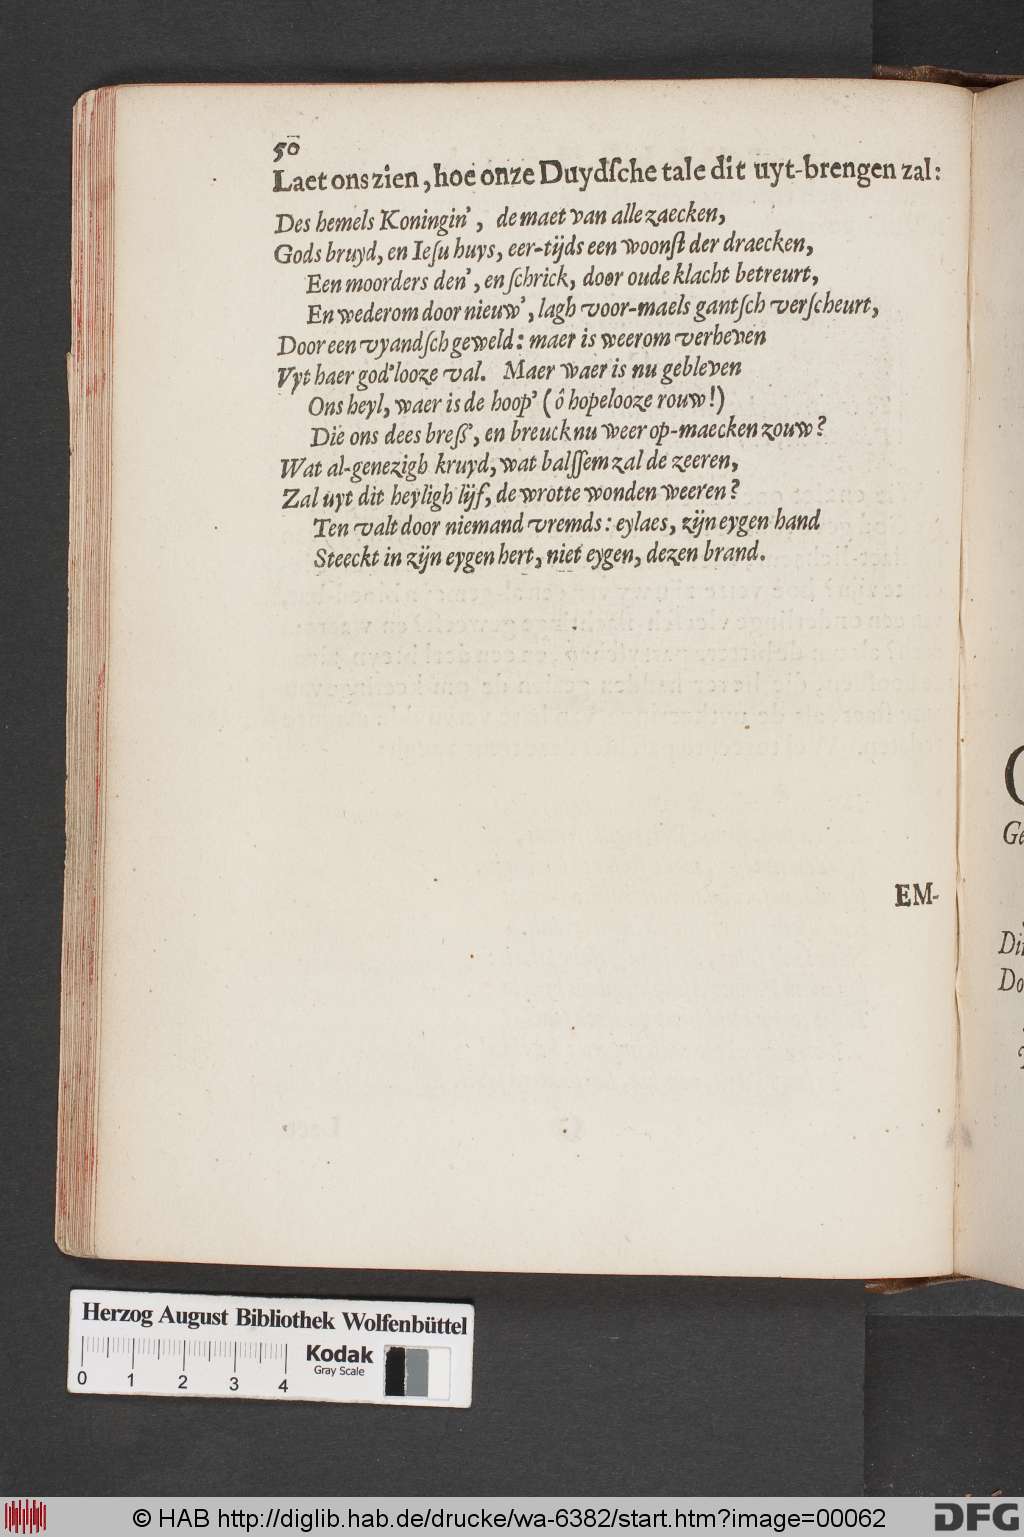 50
Laet ons zien, hoe onze Duydſche tale dit uyt-brengen zal:
Des hemels Koningin', de maet van alle zaecken,
Gods bruyd, en Ieſu huys, eer-tijds een woonſt der draecken,
Een moorders den', en ſchrick, door oude klacht betreurt,
En wederom door nieuw', lagh voor-maels gantſch verſcheurt,
Door een vyandſch geweld: maer is weerom verheven
Vyt haer god'looze val. Maer waer is nu gebleven
Ons heyl, waer is de hoop' (ô hopelooze rouw!)
Die ons dees breß', en breuck nu weer op-maecken zouw?
Wat al-genezigh kruyd, wat balſſem zal de zeeren,
Zal uyt dit heyligh lijf, de wrotte wonden weeren?
Ten valt door niemand vremds: eylaes, zijn eygen hand
Steeckt in zijn eygen hert, niet eygen, dezen brand.
EM-
Ge
Din
Do
Herzog August Bibliothek Wolfenbüttel
Kodak
Gray Scale
0 1 2 3 4
© HAB http://diglib.hab.de/drucke/wa-6382/start.htm?image=00062
DFG